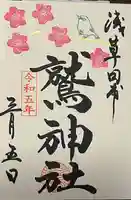 浅草田甫
鷲神社
令和五年
二月五日